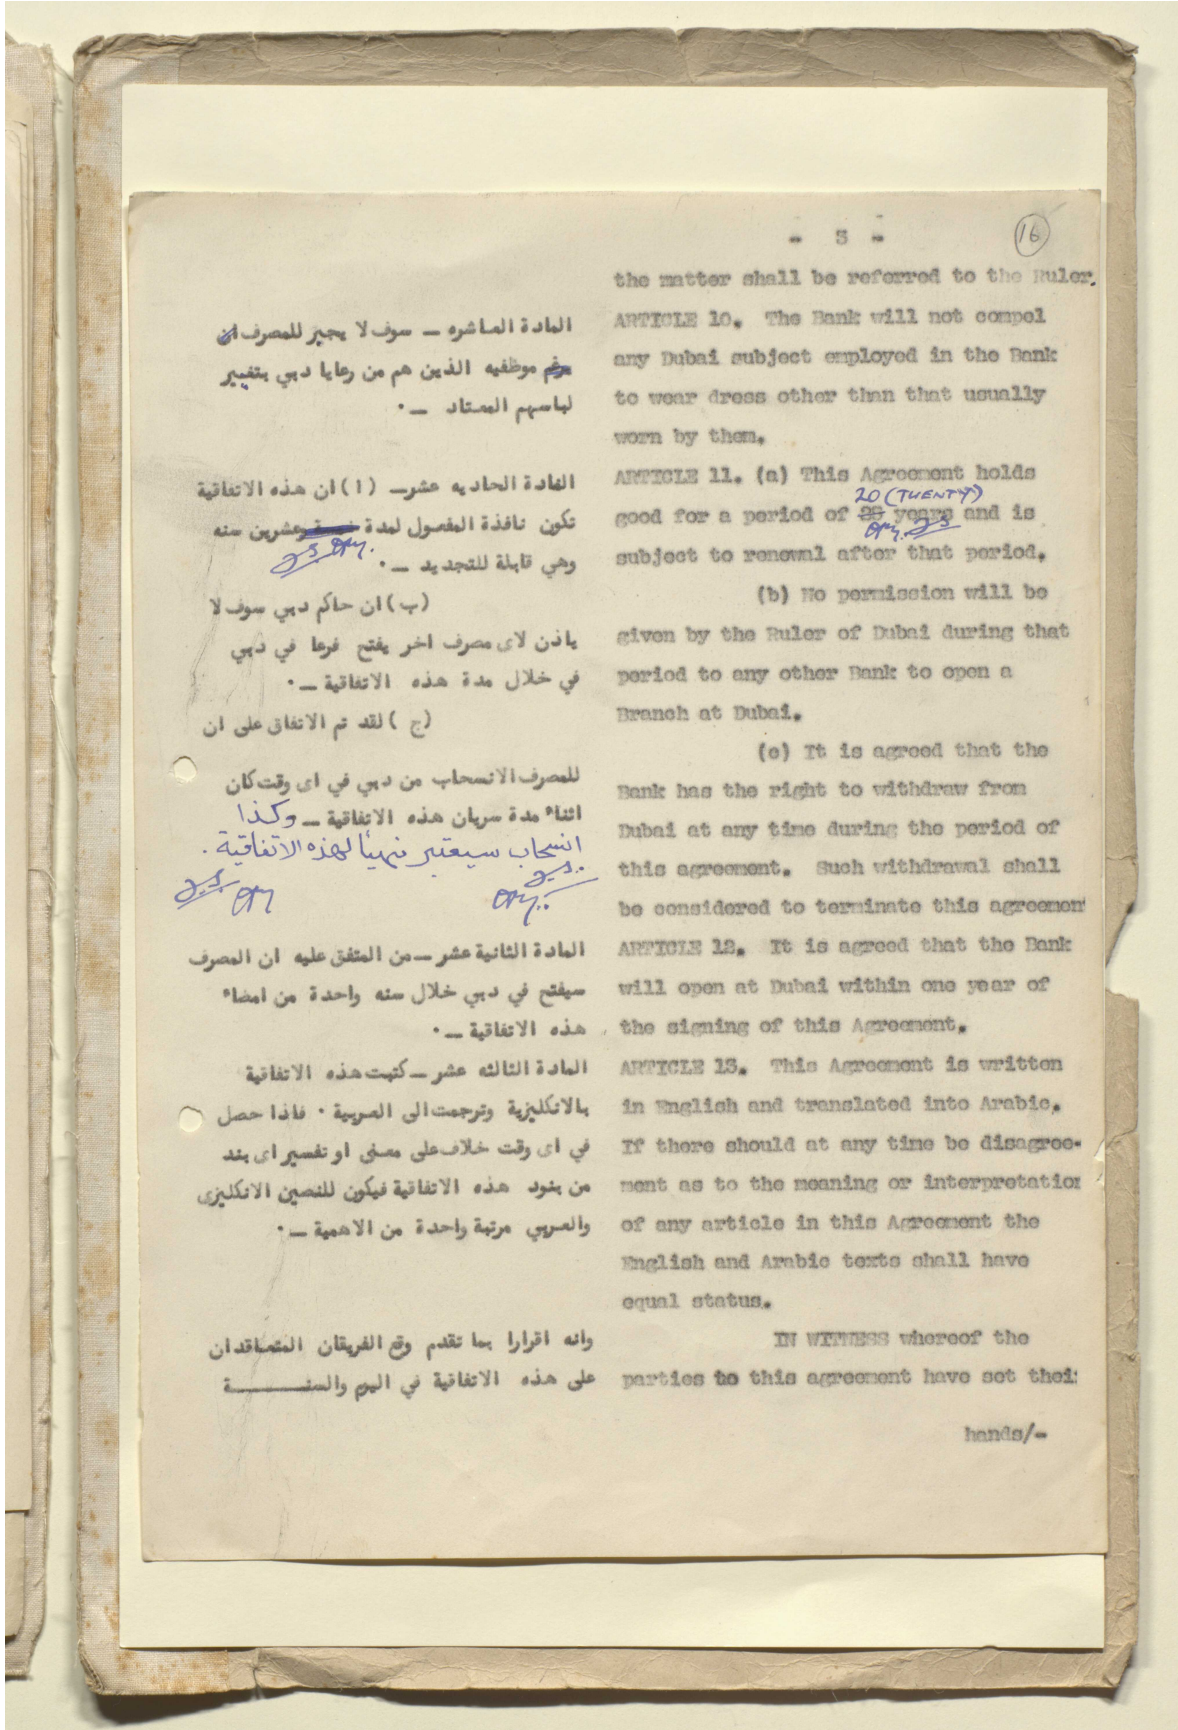 - 3 -
16
the matter shall be referred to the Ruler.
ARTICLE 10. The Bank will not compel
any Dubai subject employed in the Bank
to wear dress other than that usually
worn by them.
ARTICLE 11. (a) This Agreement holds
20 (TWENTY)
good for a period of 25 years and is
subject to renewal after that period.
(b) No permission will be
given by the Ruler of Dubai during that
period to any other Bank to open a
Branch at Dubai.
(c) It is agreed that the
Bank has the right to withdraw from
Dubai at any time during the period of
this agreement. Such withdrawal shall
be considered to terminate this agreemen
ARTICLE 12. It is agreed that the Bank
will open at Dubai within one year of
the signing of this Agreement.
ARTICLE 13. This Agreement is written
in English and translated into Arabic.
If there should at any time be disagree-
ment as to the meaning or interpretation
of any article in this Agreement the
English and Arabic texts shall have
equal status.
IN WITNESS whereof the
parties to this agreement have set their
hands/-
المادة العاشره ـ سوف لا يجبر للمصرف ان
موظفيه الذين هم من رعايا دبي بتغيير
لباسهم المعتاد ـ ٠
المادة الحاديه عشر ـ (ا) ان هذه الاتفاقية
تكون نافذة المفعول لمدة خمسة وعشرين سنه
وهي قابلة للتجديد ـ ٠
(ب) ان حاكم دبي سوف لا
ياذن لاى مصرف اخر يفتح فرعا في دبي
في خلال مدة هذه الاتفاقية ـ ٠
(ج) لقد تم الاتفاق على ان
للمصرف الانسحاب من دبي في اى وقت كان
اثناء مدة سريان هذه الاتفاقية ـ وكذا
انسحاب سيعتبر منهيئا لهذه الاتفاقية .
المادة الثانية عشر ـ من المتفق عليه ان المصرف
سيفتح في دبي خلال سنه واحدة من امضاء
هذه الاتفاقية ـ ٠
المادة الثالثه عشر ـ كتبت هذه الاتفاقية
بالانكليزية وترجمت الى العربية ٠ فاذا حصل
في اى وقت خلاف على معنى او تفسير اى بند
من بنود هذه الاتفاقية فيكون للنصين الانكليزى
والعربي مرتبة واحدة من الاهمية ـ ٠
وانه اقرارا بما تقدم وقع الفريقان المتعاقدان
على هذه الاتفاقية في اليوم والسنـــــة